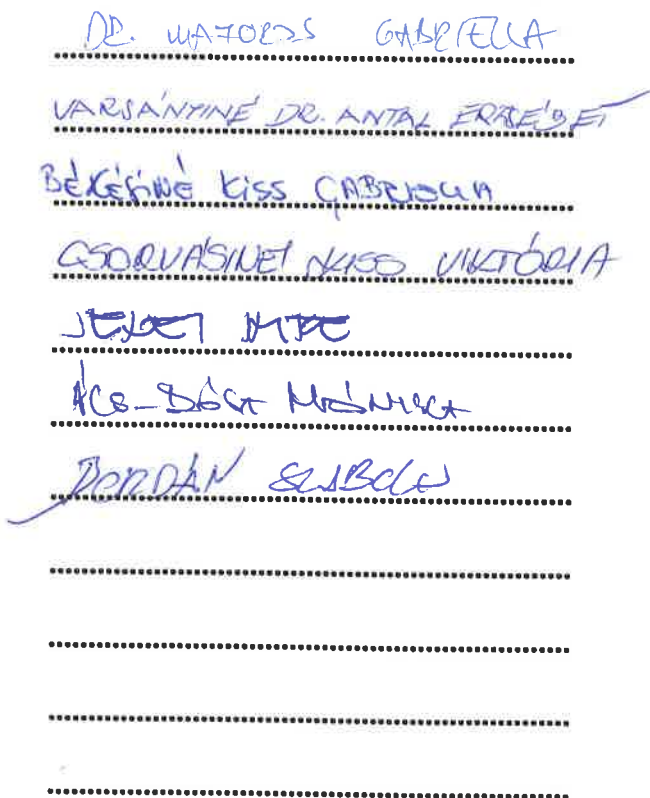 DR. MAJOROS GABRIELLA
VARSÁNYINÉ DR. ANTAL ERZSÉBET
BÉKÉSINÉ KISS GABRIELLA
CSORVÁSINÉ KISS VIKTÓRIA
IMRE
ÁCS-DÓSA MÓNIKA
DORDÁN SZABOLCS